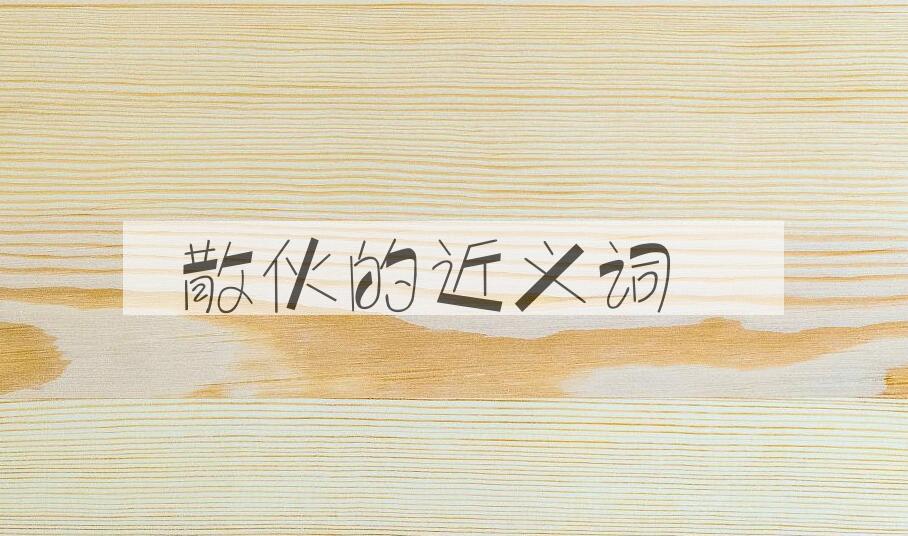 散伙的近义词